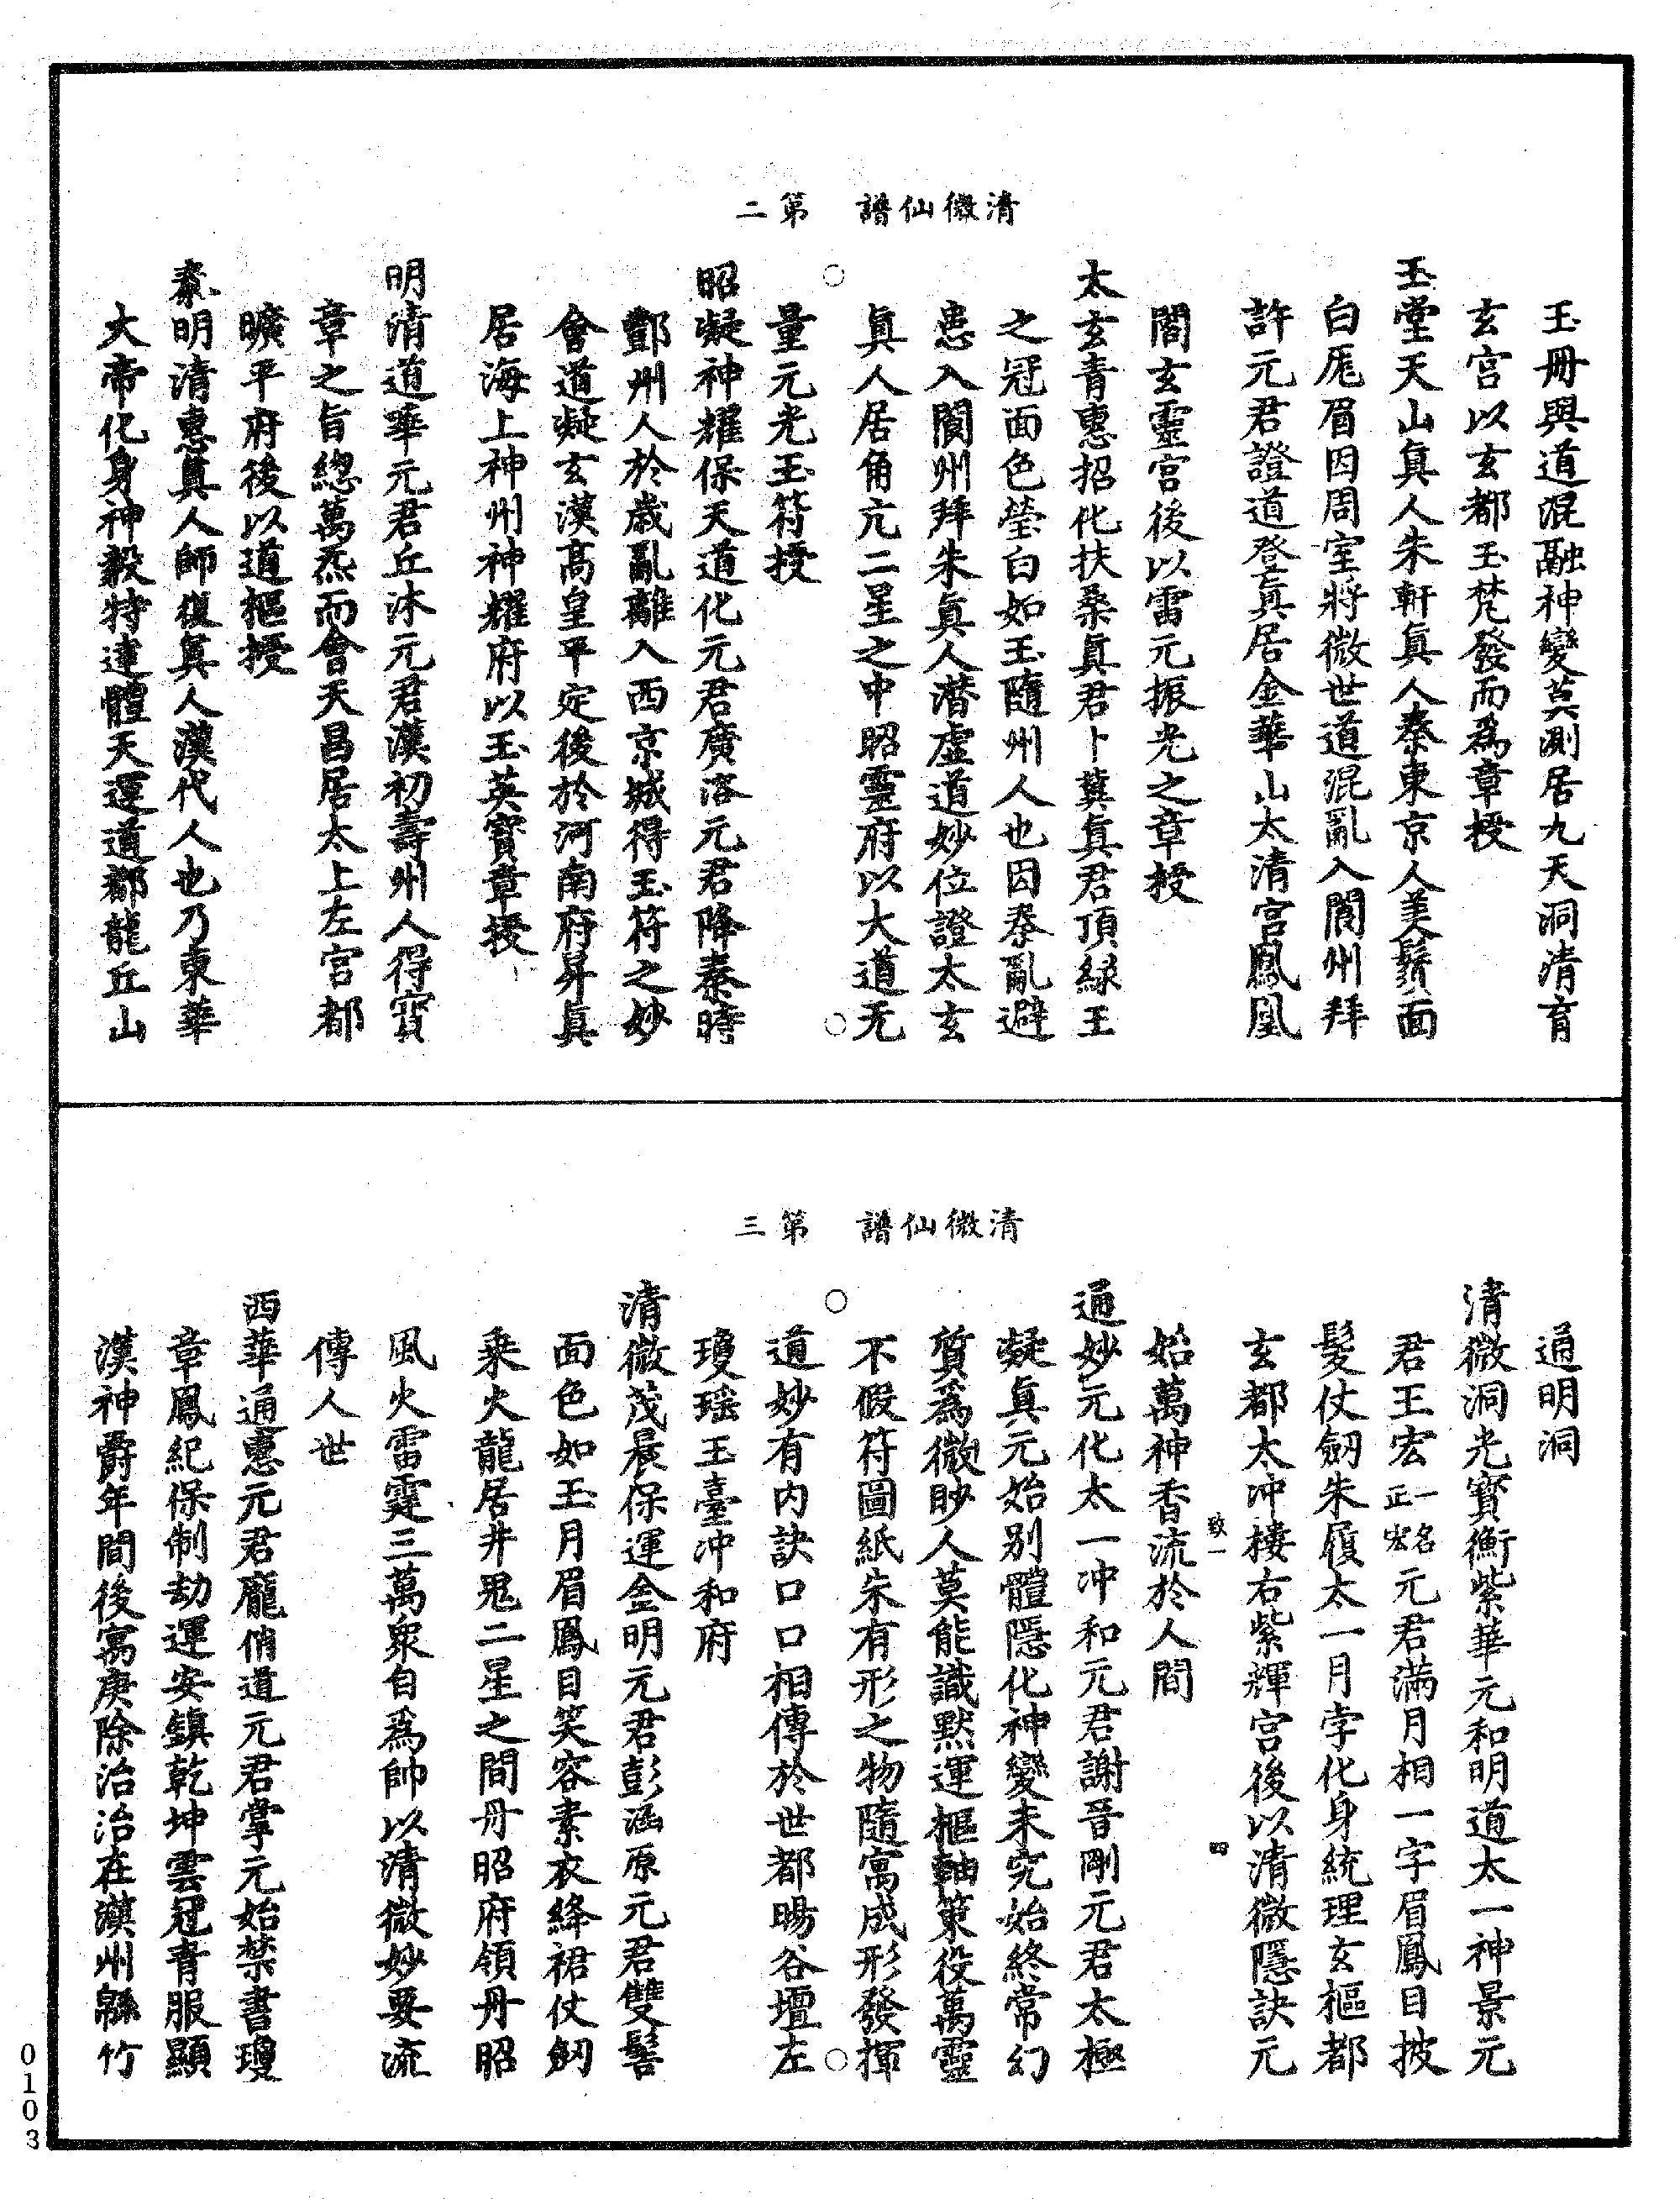 清微仙譜　第二
玉冊與道混融神變莫測居九天洞清育
玄宮以玄都玉梵發而爲章授
玉堂天山眞人朱軒眞人秦東京人美鬚面
白厖眉因周室將微世道混亂入閬州拜
許元君證道登眞居金華山太清宮鳳凰
閣玄靈宮後以雷元振光之章授
太玄青惠招化扶桑眞君卜冀眞君頂綠玉
之冠面色瑩白如玉隨州人也因秦亂避
患入閬州拜朱眞人潛虛道妙位證太玄
眞人居角亢二星之中昭靈府以大道无
量元光玉符授
昭凝神耀保天道化元君廣洛元君降秦時
鄷州人於歲亂離入西京城得玉符之妙
會道凝玄漢高皇平定後於河南府昇眞
居海上神州神耀府以玉英寶章授
明清道華元君丘沐元君漢初壽州人得寶
章之旨緫萬炁而會天昌居太上左宮都
曠平府後以道樞授
泰明清惠眞人師復眞人漢代人也乃東華
大帝化身神毅特達體天運道都龍丘山
清微仙譜　第三
通明洞
清微洞光寶衡紫華元和明道太一神景元
君王宏一名正宏元君滿月相一字眉鳳目披
髮仗劒朱履太一月孛化身統理玄樞都
玄都太冲棲右紫輝宮後以清微隱訣元
致一　四
始萬神香流於人間
通妙元化太一冲和元君謝晉剛元君太極
凝眞元始别體隱化神變未究始終常幻
質爲微眇人莫能識默運樞軸策役萬靈
不假符圖紙朱有形之物隨寓成形發揮
道妙有内訣口口相傳於世都暘谷壇左
瓊瑶玉臺冲和府
清微茂晨保運金明元君彭涵原元君雙髻
面色如玉月眉鳳目笑容素衣絳裙仗劒
乗火龍居井鬼二星之間丹昭府領丹昭
風火雷霆三萬衆自爲帥以清微妙要流
傳人世
西華通惠元君龐俏道元君掌元始禁書瓊
章鳳紀保制劫運安鎮乾坤雲冠青服顯
漢神爵年間後寓庚除治治在漢州緜竹
0103